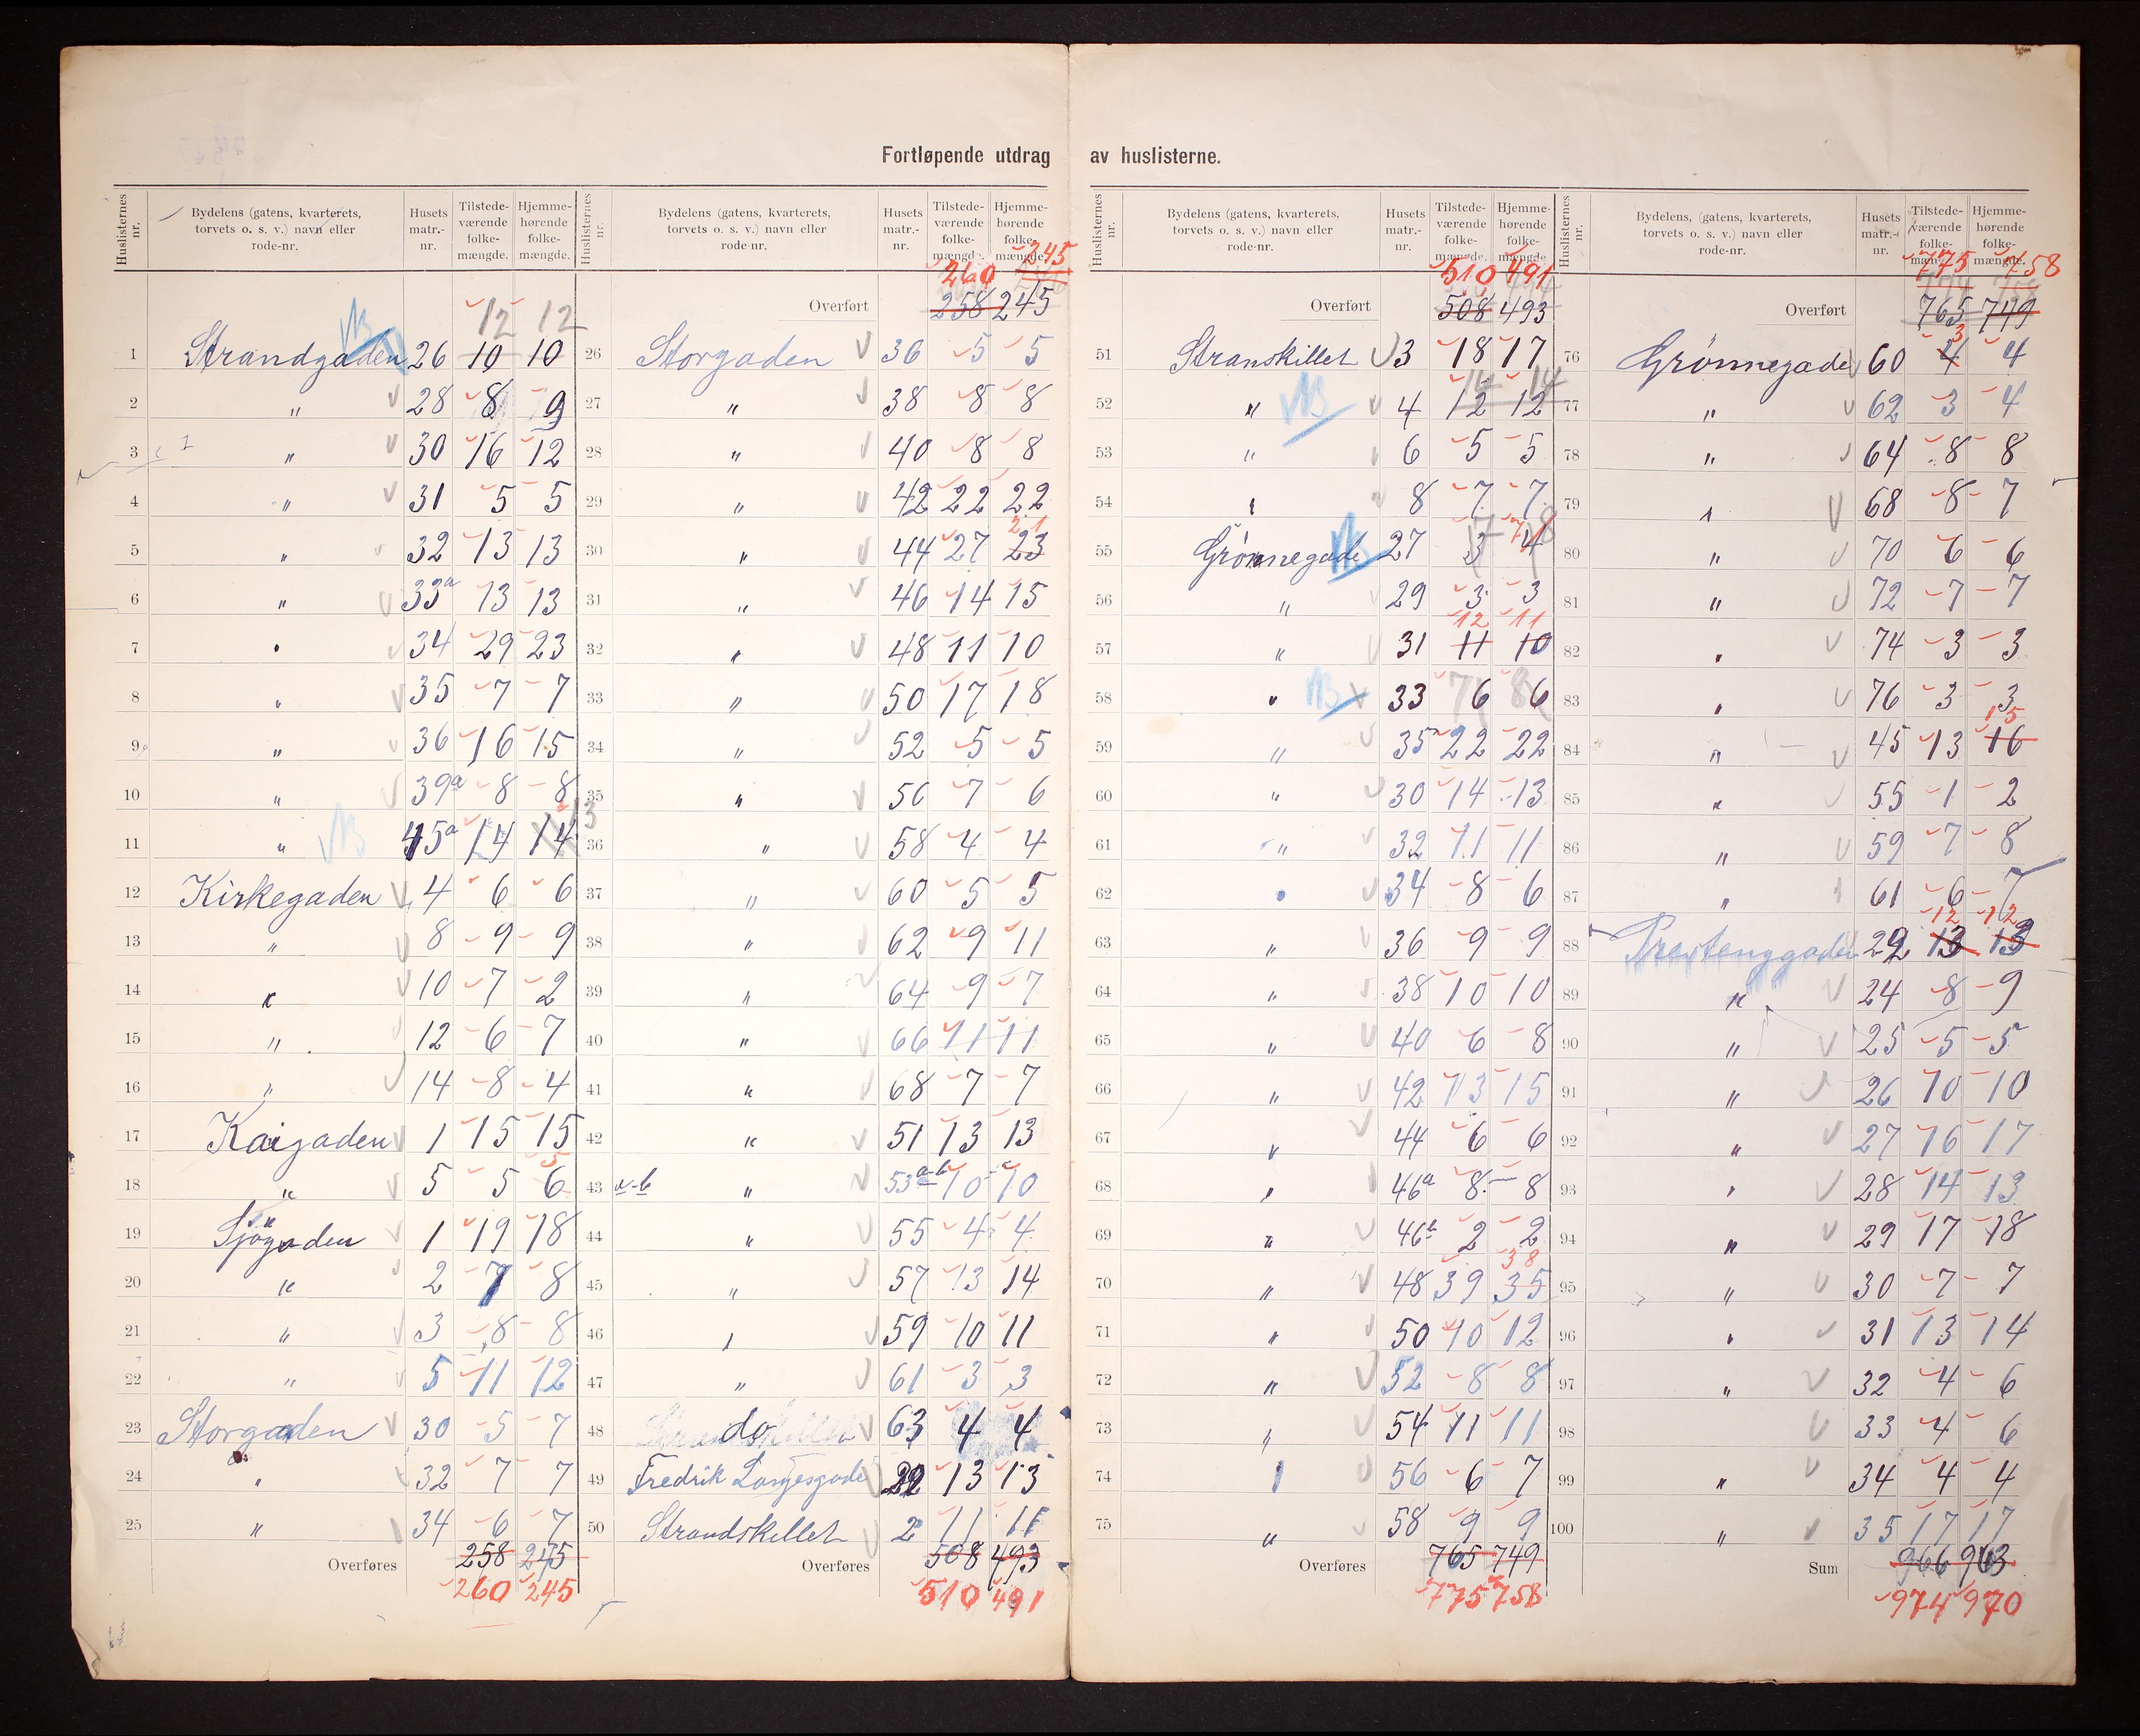 Fortløpende utdrag av huslisterne.
Huslisternes nr. | Bydelens (gatens, kvarterets, torvets o. s. v.) navn eller rode-nr. | Husets matr.-nr. | Tilstedeværende folkemængde. | Hjemmehørende folkemængde.
12 12
1 Strandgaden 26 10 10
2 " 28 8 9
3 " 30 16 12
4 " 31 5 5
5 " 32 13 13
6 " 33a 13 13
7 " 34 29 23
8 " 35 7 7
9 " 36 16 15
10 " 39a 8 8
13
11 " 45a 14 14
12 Kirkegaden 4 6 6
13 " 8 9 9
14 " 10 7 2
15 " 12 6 7
16 " 14 8 4
17 Kaigaden 1 15 15
5
18 " 5 5 6
19 Sjøgaden 1 19 18
20 " 2 7 8
21 " 3 8 8
22 " 5 11 12
23 Storgaden 30 5 7
24 " 32 7 7
25 " 34 6 7
Overføres 258 245
260 245
Huslisternes nr. | Bydelens (gatens, kvarterets, torvets o. s. v.) navn eller rode-nr. | Husets matr.-nr. | Tilstedeværende folkemængde. | Hjemmehørende folkemængde.
260 245
Overført 258 245
26 Storgaden 36 5 5
27 " 38 8 8
28 " 40 8 8
29 " 42 22 22
21
30 " 44 27 23
31 " 46 14 15
32 " 48 11 10
33 " 50 17 18
34 " 52 5 5
35 " 56 7 6
36 " 58 4 4
37 " 60 5 5
38 " 62 9 11
39 " 64 9 7
40 " 66 11 11
41 " 68 7 7
42 " 51 13 13
43 a-b " 53a-b 10 10
44 " 55 4 4
45 " 57 13 14
46 " 59 10 11
47 " 61 3 3
48 do 63 4 4
49 Fredrik Langesgade 22 13 13
50 Strandskillet 2 11 11
Overføres 508 493
510 491
Huslisternes nr. | Bydelens (gatens, kvarterets, torvets o. s. v.) navn eller rode-nr. | Husets matr.-nr. | Tilstedeværende folkemængde. | Hjemmehørende folkemængde.
510 491
Overført 508 493
51 Stranskillet 3 18 17
14 14
52 " 4 12 12
53 " 6 5 5
54 " 8 7 7
55 Grønnegade 27 3 4
56 " 29 3 3
12 11
57 " 31 11 10
58 " 33 6 6
59 " 35a 22 22
60 " 30 14 13
61 " 32 11 11
62 " 34 8 6
63 " 36 9 9
64 " 38 10 10
65 " 40 6 8
66 " 42 13 15
67 " 44 6 6
68 " 46a 8 8
69 " 46b 2 2
38
70 " 48 39 35
71 " 50 10 12
72 " 52 8 8
73 " 54 11 11
74 " 56 6 7
75 " 58 9 9
Overføres 765 749
775 758
Huslisternes nr. | Bydelens, (gatens, kvarterets, torvets o. s. v.) navn eller rode-nr. | Husets matr.-nr. | Tilstedeværende folkemængde. | Hjemmehørende folkemængde.
775 758
Overført 765 749
3
76 Grønnegade 60 4 4
77 " 62 3 4
78 " 64 8 8
79 " 68 8 7
80 " 70 6 6
81 " 72 7 7
82 " 74 3 3
83 " 76 3 3
15
84 " 45 13 16
85 " 55 1 2
86 " 59 7 8
87 " 61 6 7
12 12
88 Prestenggaden 22 13 13
89 " 24 8 9
90 " 25 5 5
91 " 26 10 10
92 " 27 16 17
93 " 28 14 13
94 " 29 17 18
95 " 30 7 7
96 " 31 13 14
97 " 32 4 6
98 33 4 6
99 " 34 4 4
100 " 35 17 17
Sum 966 963
974 970